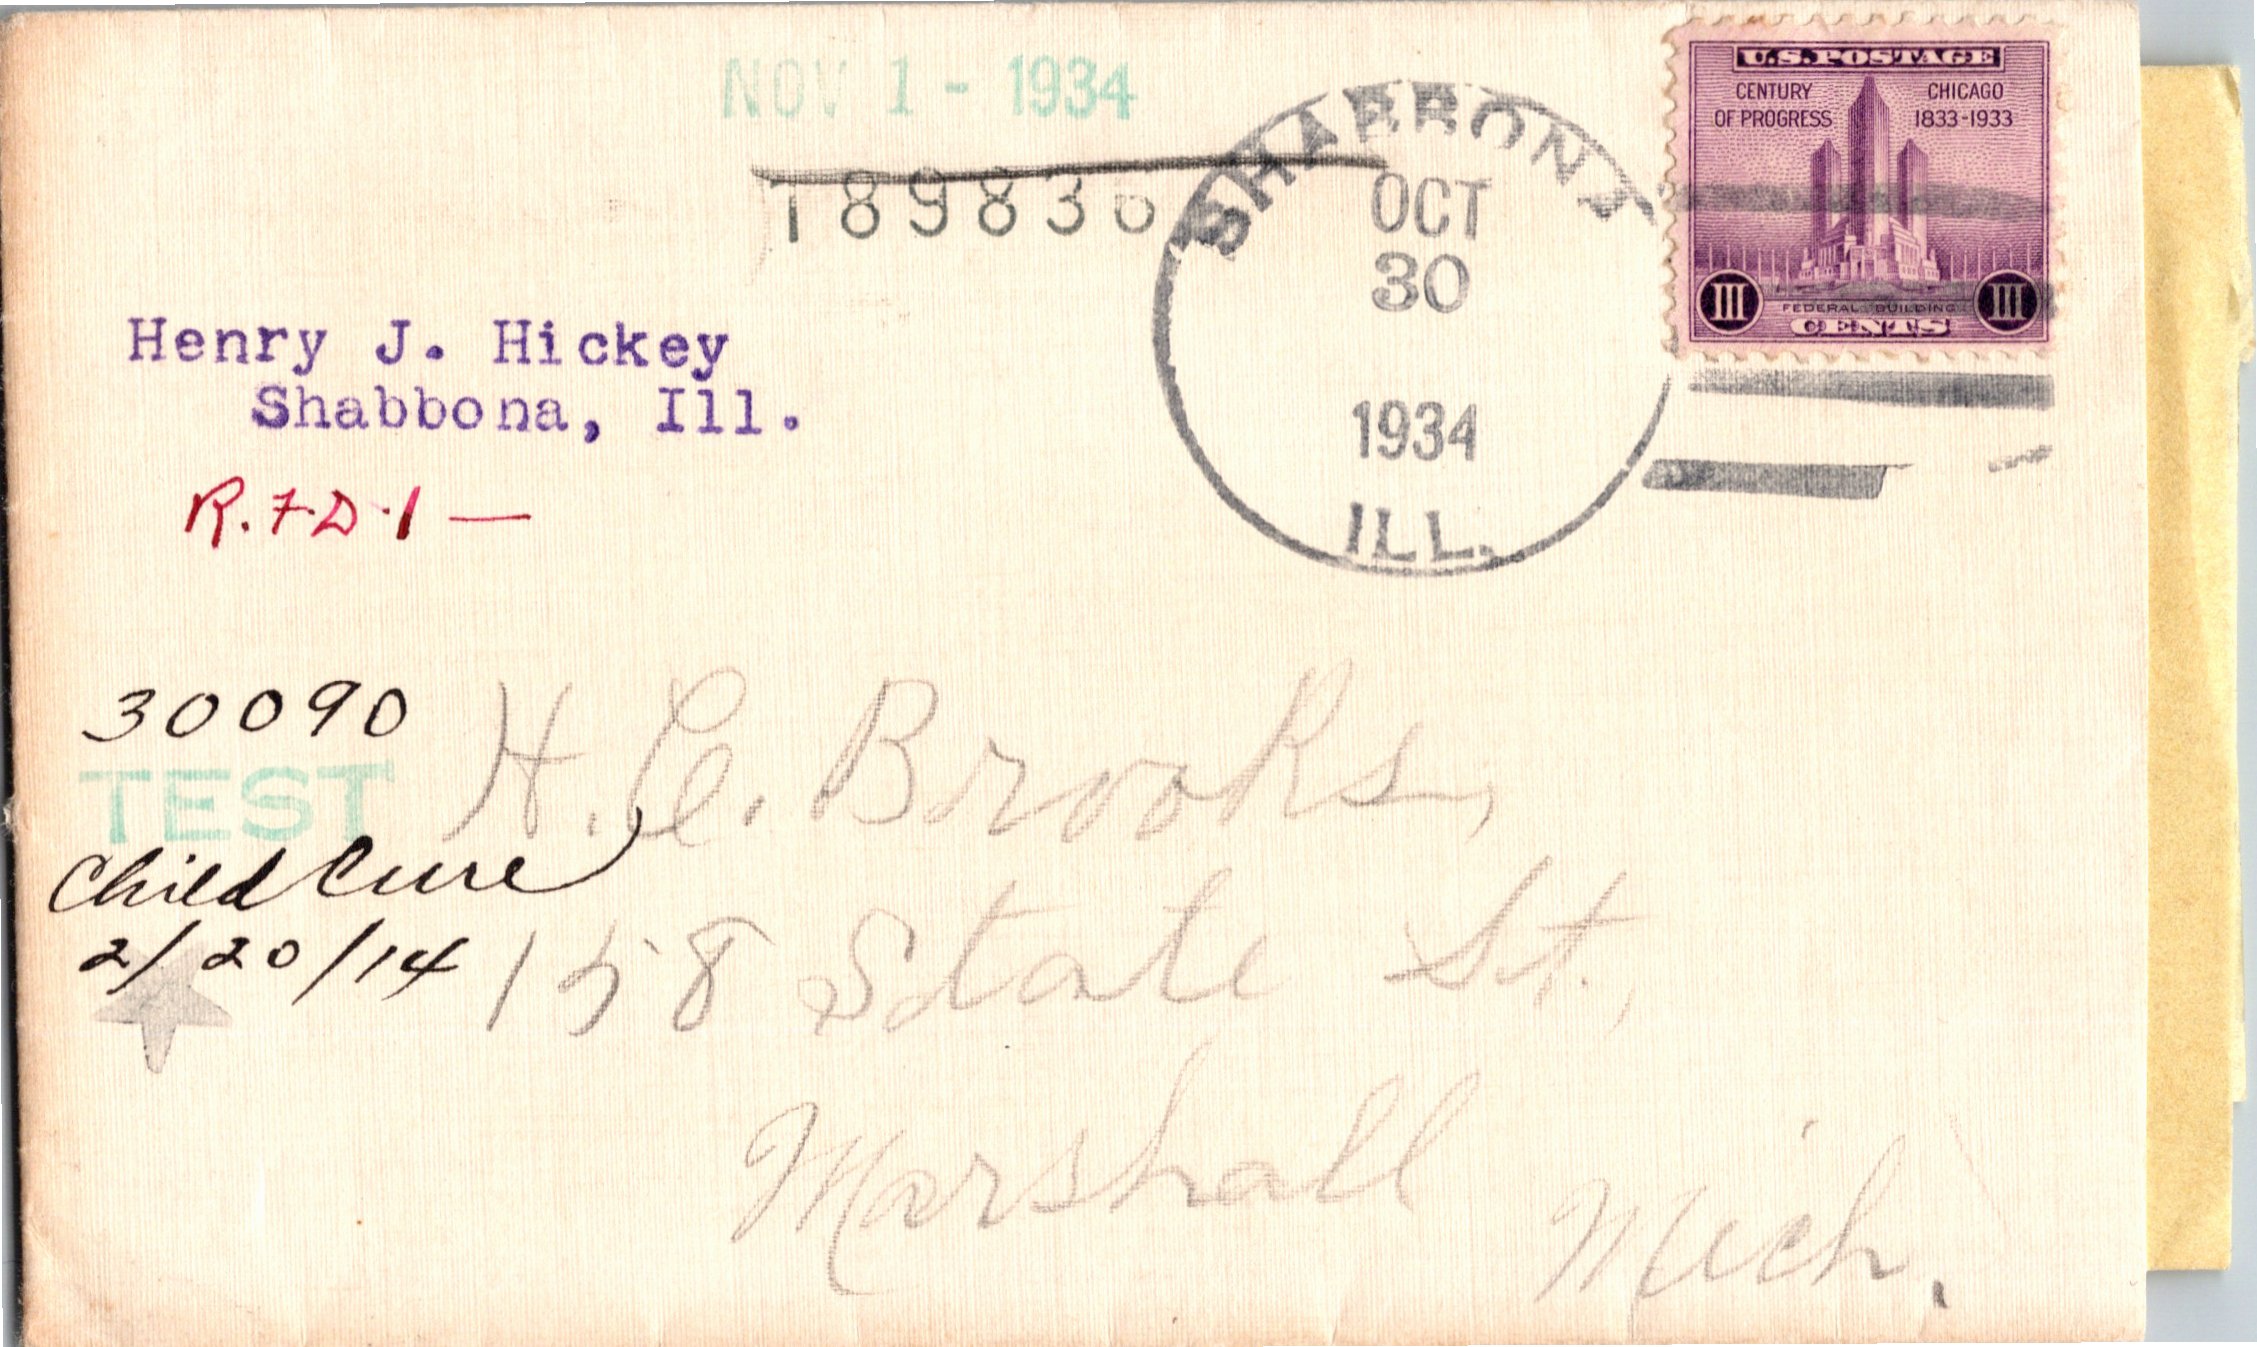 NOV 1 - 1934
189836
Henry J. Hickey
Shabbona, Ill.
R.F.D.1 —
SHABBONA
OCT
30
1934
ILL.
U.S. POSTAGE
CENTURY OF PROGRESS
CHICAGO 1833-1933
III
FEDERAL BUILDING
III
CENTS
30090
TEST
Child Cure
2/20/14
H. C. Brooks,
158 State St.,
Marshall
Mich.